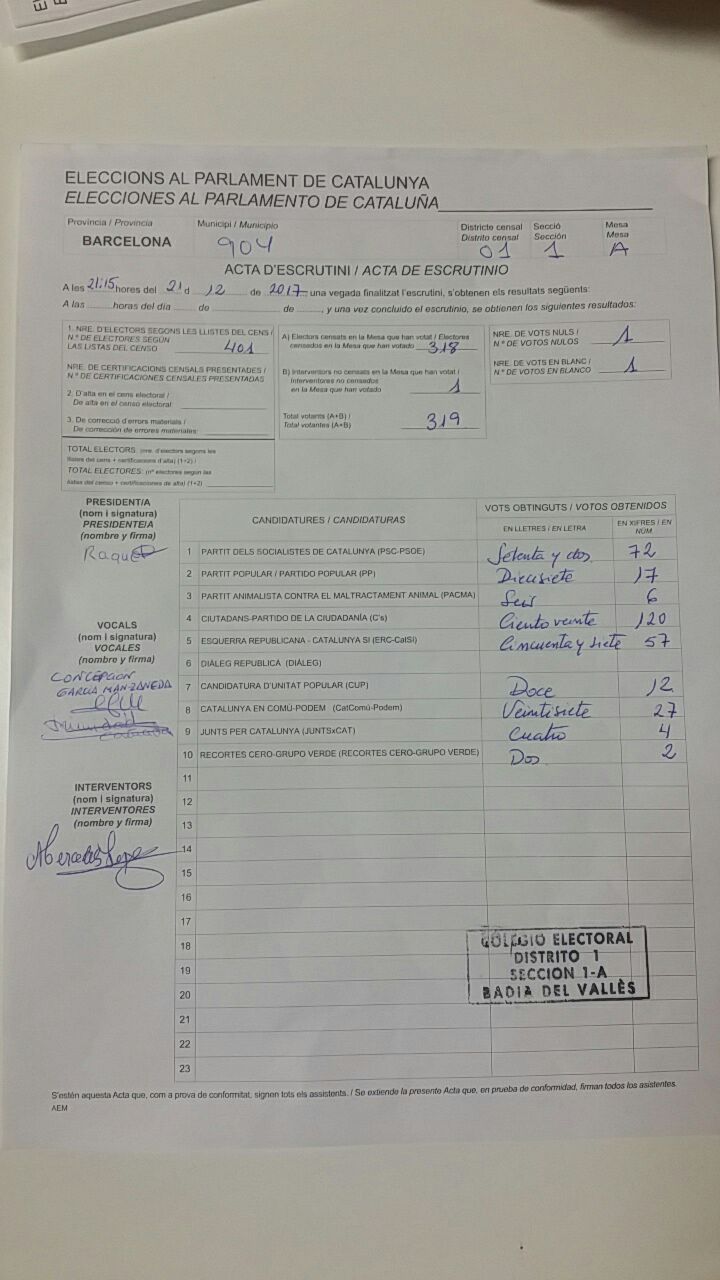 ELECCIONS AL PARLAMENT DE CATALUNYA
ELECCIONES AL PARLAMENTO DE CATALUÑA
Província / Provincia Municipi / Municipio Districte censal Secció Mesa
Distrito censal Sección Mesa
BARCELONA 904 01 1 A
ACTA D'ESCRUTINI / ACTA DE ESCRUTINIO
A les 21:15 hores del 21 d 12 de 2017 una vegada finalitzat l'escrutini, s'obtenen els resultats següents:
A las horas del día de de , y una vez concluido el escrutinio, se obtienen los siguientes resultados:
1. NRE. D'ELECTORS SEGONS LES LLISTES DEL CENS /
N.º DE ELECTORES SEGÚN
LAS LISTAS DEL CENSO 401
NRE. DE CERTIFICACIONS CENSALS PRESENTADES /
N.º DE CERTIFICACIONES CENSALES PRESENTADAS
2. D'alta en el cens electoral /
De alta en el censo electoral:
3. De correcció d'errors materials /
De corrección de errores materiales:
TOTAL ELECTORS: (nre. d'electors segons les
llistes del cens + certificacions d'alta) (1+2) /
TOTAL ELECTORES: (nº electores según las
listas del censo + certificaciones de alta) (1+2)
A) Electors censats en la Mesa que han votat / Electores
censados en la Mesa que han votado 318
B) Interventors no censats en la Mesa que han votat /
Interventores no censados
en la Mesa que han votado 1
Total votants (A+B) /
Total votantes (A+B) 319
NRE. DE VOTS NULS /
N.º DE VOTOS NULOS 1
NRE. DE VOTS EN BLANC /
N.º DE VOTOS EN BLANCO 1
PRESIDENT/A
(nom i signatura)
PRESIDENTE/A
(nombre y firma)
Raquel
VOCALS
(nom i signatura)
VOCALES
(nombre y firma)
CONCEPCION
GARCIA MANZANEDA
INTERVENTORS
(nom i signatura)
INTERVENTORES
(nombre y firma)
Mercedes Lopez
CANDIDATURES / CANDIDATURAS VOTS OBTINGUTS / VOTOS OBTENIDOS
EN LLETRES / EN LETRA EN XIFRES / EN NÚM.
1 PARTIT DELS SOCIALISTES DE CATALUNYA (PSC-PSOE) Setenta y dos 72
2 PARTIT POPULAR / PARTIDO POPULAR (PP) Diecisiete 17
3 PARTIT ANIMALISTA CONTRA EL MALTRACTAMENT ANIMAL (PACMA) Seis 6
4 CIUTADANS-PARTIDO DE LA CIUDADANÍA (C's) Ciento veinte 120
5 ESQUERRA REPUBLICANA - CATALUNYA SÍ (ERC-CatSí) Cincuenta y siete 57
6 DIÀLEG REPUBLICÀ (DIÀLEG)
7 CANDIDATURA D'UNITAT POPULAR (CUP) Doce 12
8 CATALUNYA EN COMÚ-PODEM (CatComú-Podem) Veintisiete 27
9 JUNTS PER CATALUNYA (JUNTSxCAT) Cuatro 4
10 RECORTES CERO-GRUPO VERDE (RECORTES CERO-GRUPO VERDE) Dos 2
11
12
13
14
15
16
17
18
19
20
21
22
23
COLEGIO ELECTORAL
DISTRITO 1
SECCION 1-A
BADIA DEL VALLÈS
S'estén aquesta Acta que, com a prova de conformitat, signen tots els assistents. / Se extiende la presente Acta que, en prueba de conformidad, firman todos los asistentes.
AEM